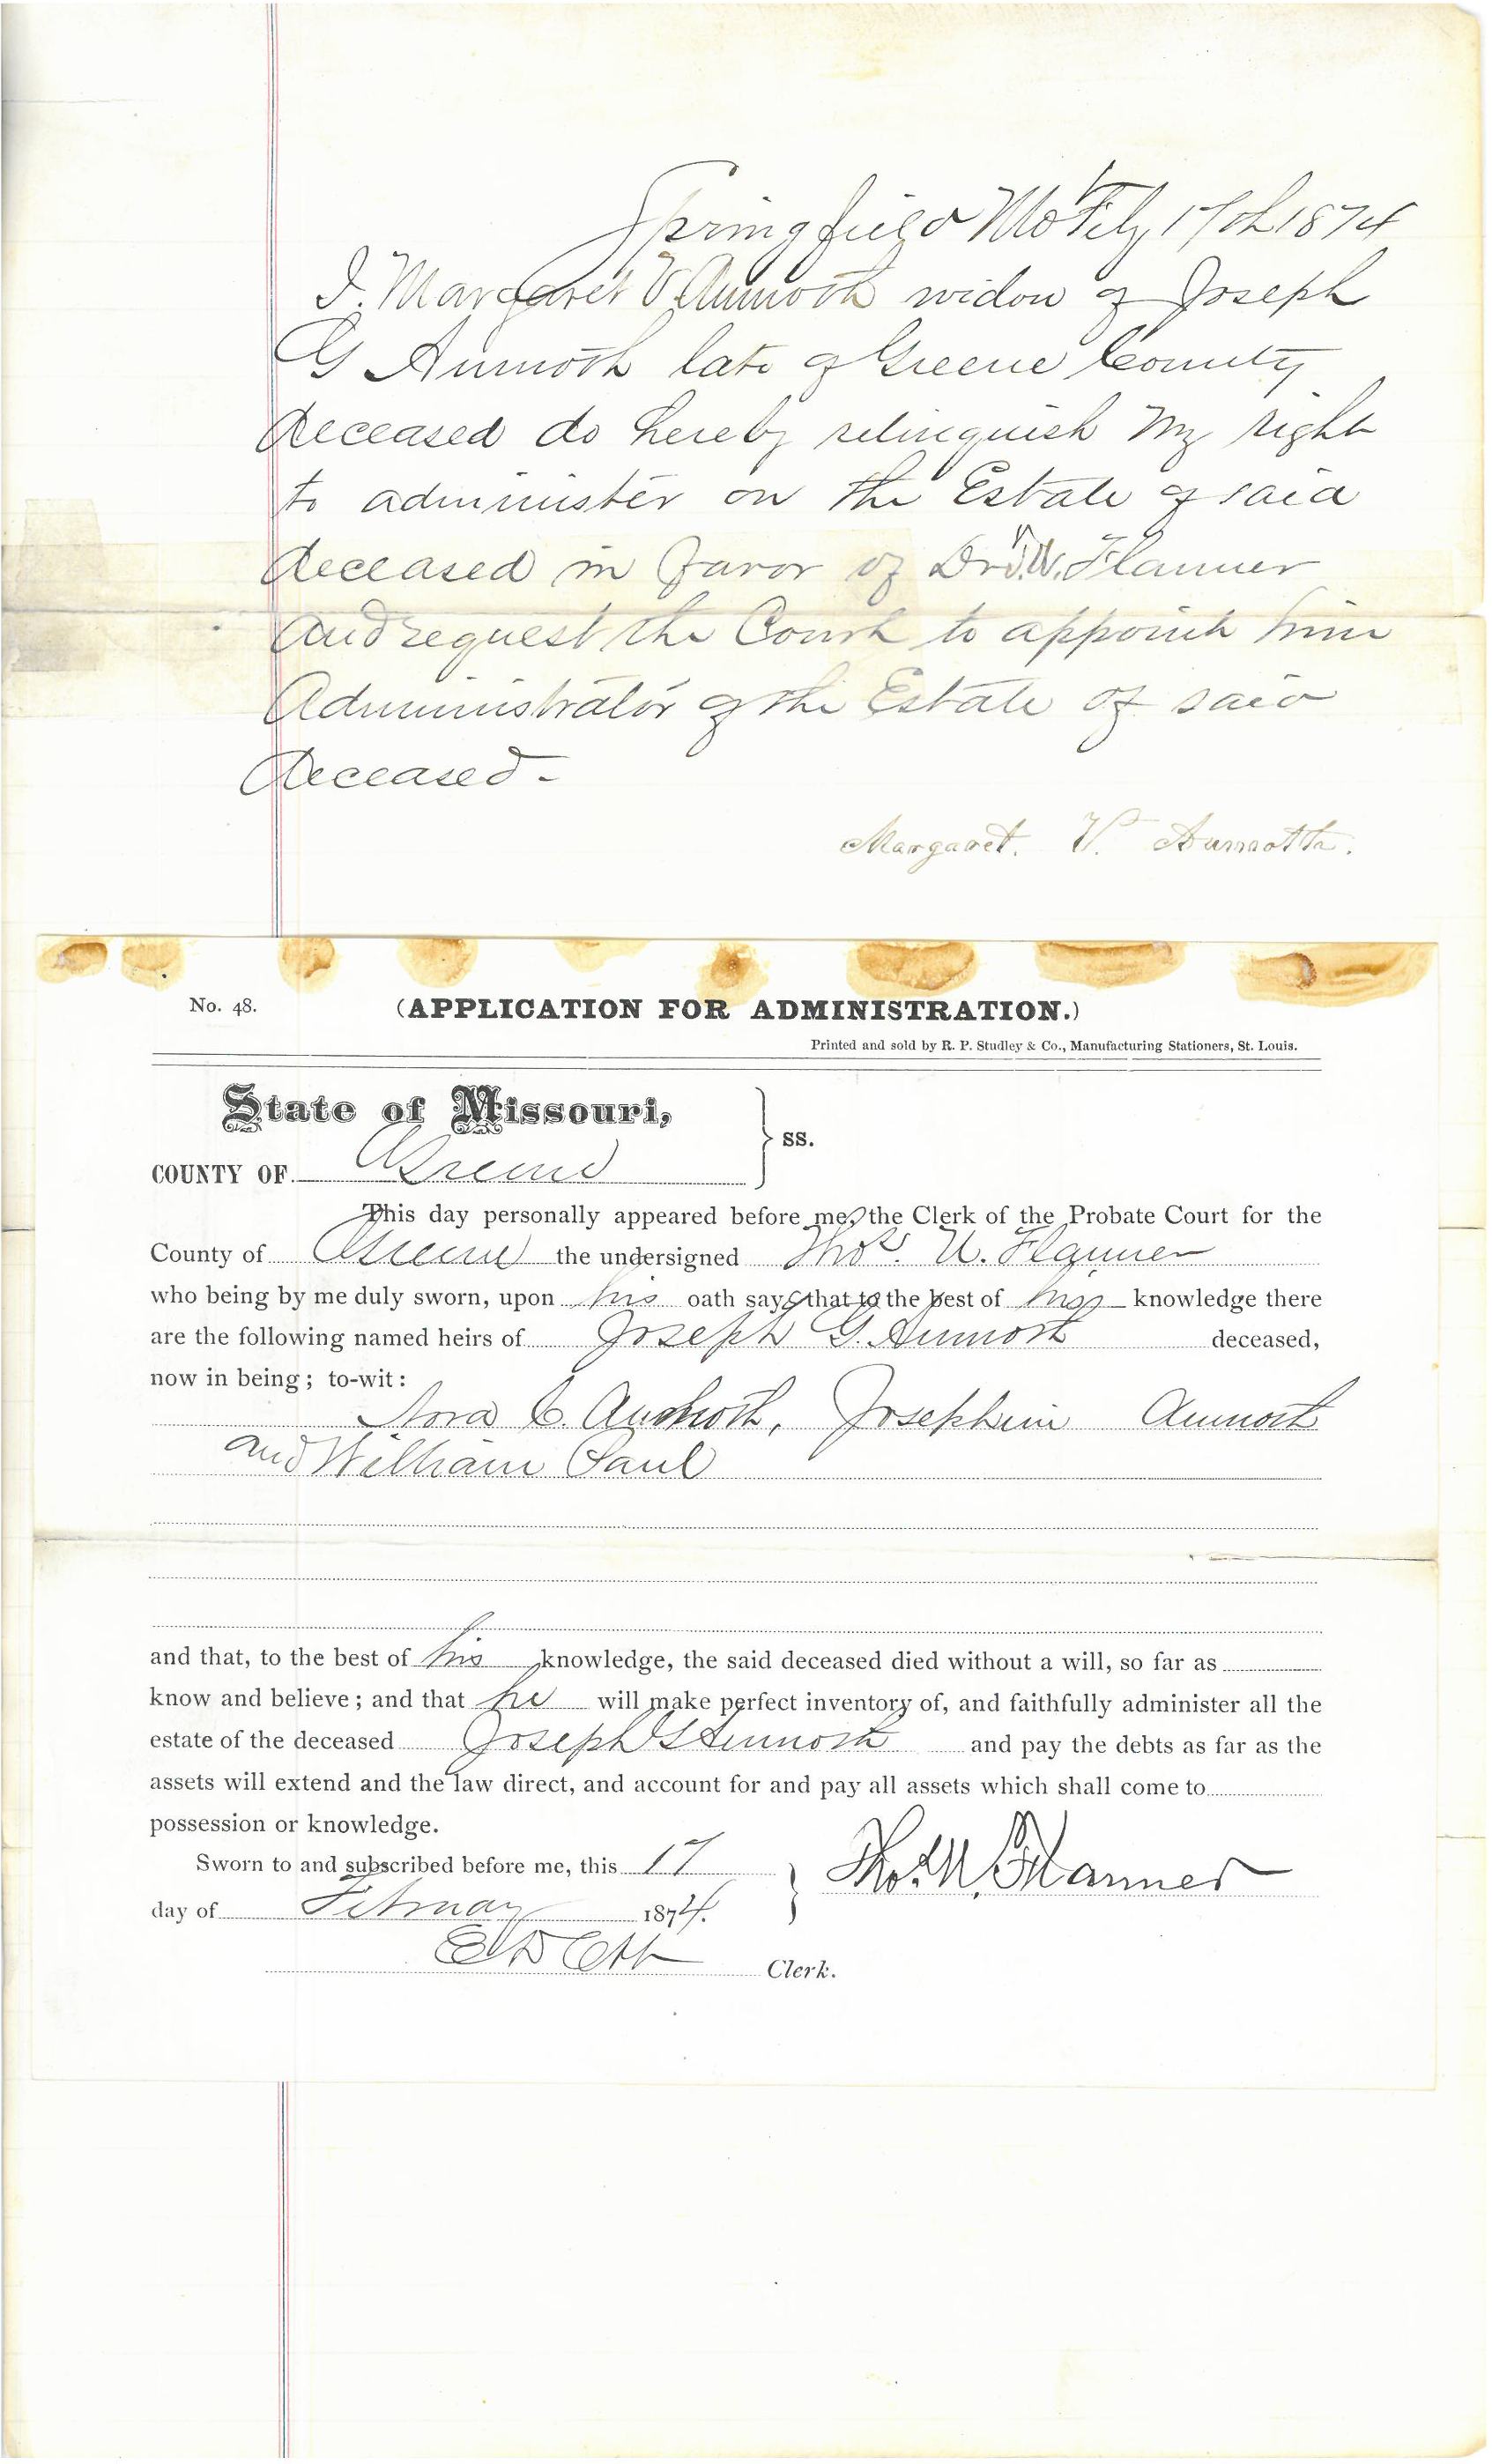 Springfield Mo Feby 17th 1874
I. Margaret V. Aumoth widow of Joseph
G Aumoth late of Greene County
deceased do hereby relinquish my right
to administer on the Estate of said
deceased in favor of Dr T.W. Flanner
and request the Court to appoint him
Administrator of the Estate of said
deceased -
Margaret. V. Aumoth.
No. 48.
(APPLICATION FOR ADMINISTRATION.)
Printed and sold by R. P. Studley & Co., Manufacturing Stationers, St. Louis.
State of Missouri,
COUNTY OF Greene } ss.
This day personally appeared before me, the Clerk of the Probate Court for the
County of Greene the undersigned Thos. W. Flanner
who being by me duly sworn, upon his oath says that to the best of his knowledge there
are the following named heirs of Joseph G. Aumoth deceased,
now in being; to-wit:
Nora C. Aumoth, Josephine Aumoth
and William Paul
and that, to the best of his knowledge, the said deceased died without a will, so far as
know and believe; and that he will make perfect inventory of, and faithfully administer all the
estate of the deceased Joseph G Aumoth and pay the debts as far as the
assets will extend and the law direct, and account for and pay all assets which shall come to
possession or knowledge.
Sworn to and subscribed before me, this 17 } Thos. W. Flanner
day of February 1874.
E D Ott Clerk.